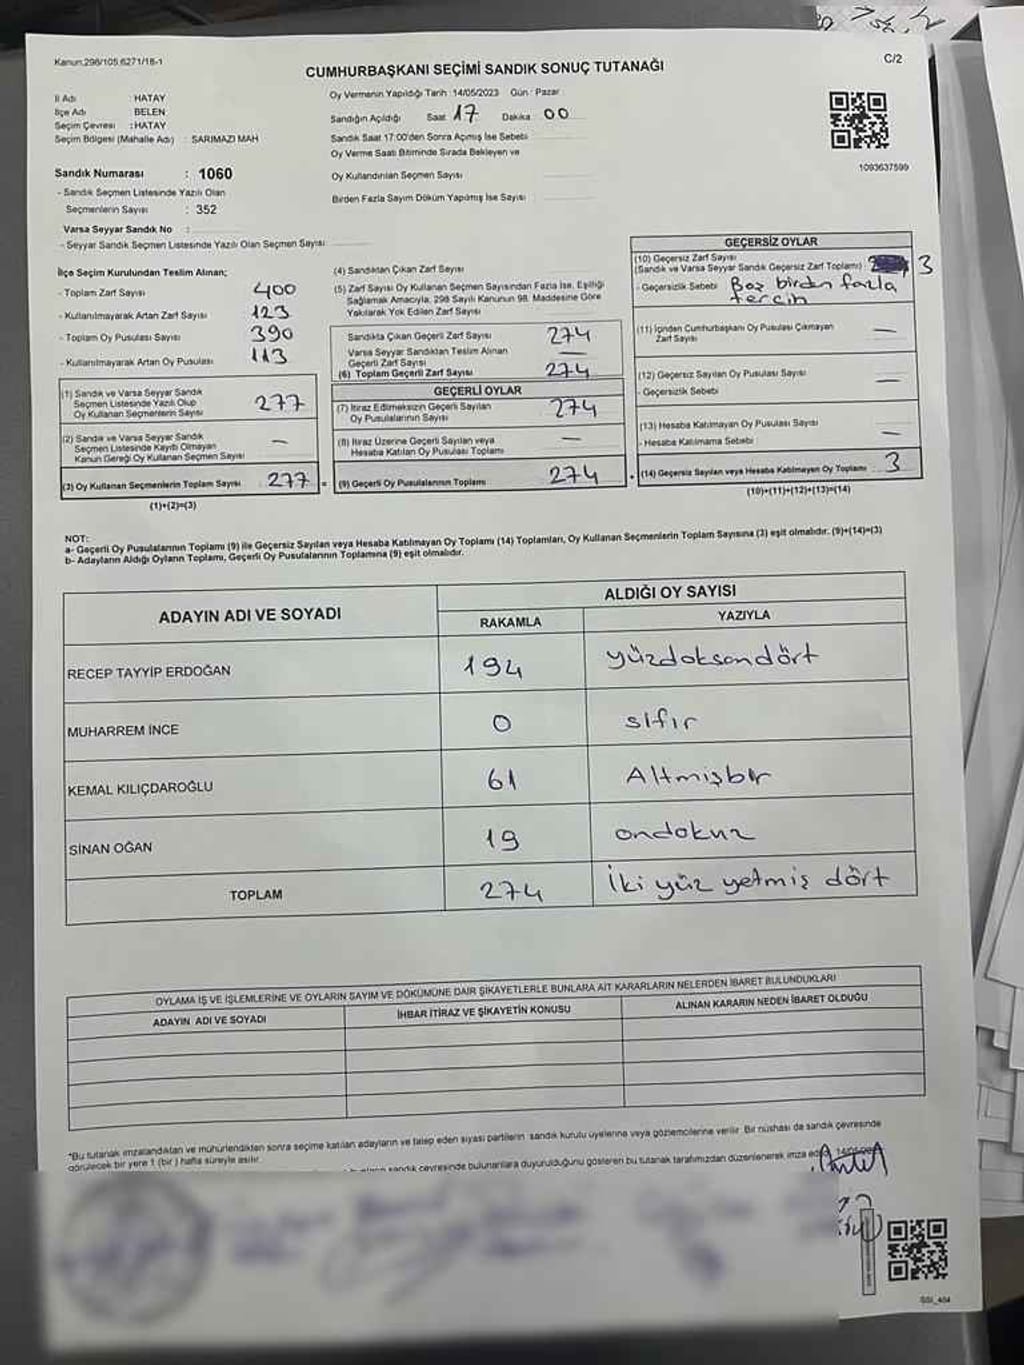 Kanun.298/105,6271/18-1
C/2
CUMHURBAŞKANI SEÇİMİ SANDIK SONUÇ TUTANAĞI
İl Adı : HATAY
İlçe Adı : BELEN
Seçim Çevresi : HATAY
Seçim Bölgesi (Mahalle Adı) : SARIMAZI MAH
Sandık Numarası : 1060
- Sandık Seçmen Listesinde Yazılı Olan
Seçmenlerin Sayısı : 352
Varsa Seyyar Sandık No :
- Seyyar Sandık Seçmen Listesinde Yazılı Olan Seçmen Sayısı
Oy Vermenin Yapıldığı Tarih : 14/05/2023 Gün : Pazar
Sandığın Açıldığı Saat 17 Dakika 00
Sandık Saat 17:00'den Sonra Açılmış İse Sebebi
Oy Verme Saati Bitiminde Sırada Bekleyen ve
Oy Kullandırılan Seçmen Sayısı
Birden Fazla Sayım Döküm Yapılmış İse Sayısı
1093637599
İlçe Seçim Kurulundan Teslim Alınan;
- Toplam Zarf Sayısı 400
- Kullanılmayarak Artan Zarf Sayısı 123
- Toplam Oy Pusulası Sayısı 390
- Kullanılmayarak Artan Oy Pusulası 113
(1) Sandık ve Varsa Seyyar Sandık
Seçmen Listesinde Yazılı Olup
Oy Kullanan Seçmenlerin Sayısı 277
(2) Sandık ve Varsa Seyyar Sandık
Seçmen Listesinde Kayıtlı Olmayan
Kanun Gereği Oy Kullanan Seçmen Sayısı —
(3) Oy Kullanan Seçmenlerin Toplam Sayısı 277 =
(1)+(2)=(3)
(4) Sandıktan Çıkan Zarf Sayısı
(5) Zarf Sayısı Oy Kullanan Seçmen Sayısından Fazla İse, Eşitliği
Sağlamak Amacıyla, 298 Sayılı Kanunun 98. Maddesine Göre
Yakılarak Yok Edilen Zarf Sayısı
Sandıkta Çıkan Geçerli Zarf Sayısı 274
Varsa Seyyar Sandıktan Teslim Alınan
Geçerli Zarf Sayısı —
(6) Toplam Geçerli Zarf Sayısı 274
GEÇERLİ OYLAR
(7) İtiraz Edilmeksizin Geçerli Sayılan
Oy Pusulalarının Sayısı 274
(8) İtiraz Üzerine Geçerli Sayılan veya
Hesaba Katılan Oy Pusulası Toplamı —
(9) Geçerli Oy Pusulalarının Toplamı 274
GEÇERSİZ OYLAR
(10) Geçersiz Zarf Sayısı
(Sandık ve Varsa Seyyar Sandık Geçersiz Zarf Toplamı) : 3
- Geçersizlik Sebebi Baz birden fazla
tercih
(11) İçinden Cumhurbaşkanı Oy Pusulası Çıkmayan
Zarf Sayısı —
(12) Geçersiz Sayılan Oy Pusulası Sayısı
- Geçersizlik Sebebi —
(13) Hesaba Katılmayan Oy Pusulası Sayısı
- Hesaba Katılmama Sebebi —
(14) Geçersiz Sayılan veya Hesaba Katılmayan Oy Toplamı 3
(10)+(11)+(12)+(13)=(14)
NOT:
a- Geçerli Oy Pusulalarının Toplamı (9) ile Geçersiz Sayılan veya Hesaba Katılmayan Oy Toplamı (14) Toplamları, Oy Kullanan Seçmenlerin Toplam Sayısına (3) eşit olmalıdır. (9)+(14)=(3)
b- Adayların Aldığı Oyların Toplamı, Geçerli Oy Pusulalarının Toplamına (9) eşit olmalıdır.
ADAYIN ADI VE SOYADI
ALDIĞI OY SAYISI
RAKAMLA YAZIYLA
RECEP TAYYİP ERDOĞAN 194 yüzdoksandört
MUHARREM İNCE 0 sıfır
KEMAL KILIÇDAROĞLU 61 Altmışbir
SİNAN OĞAN 19 ondokuz
TOPLAM 274 İki yüz yetmiş dört
OYLAMA İŞ VE İŞLEMLERİNE VE OYLARIN SAYIM VE DÖKÜMÜNE DAİR ŞİKAYETLERLE BUNLARA AİT KARARLARIN NELERDEN İBARET BULUNDUKLARI
ADAYIN ADI VE SOYADI İHBAR İTİRAZ VE ŞİKAYETİN KONUSU ALINAN KARARIN NEDEN İBARET OLDUĞU
*Bu tutanak imzalandıktan ve mühürlendikten sonra seçime katılan adayların ve talep eden siyasi partilerin sandık kurulu üyelerine veya gözlemcilerine verilir. Bir nüshası da sandık çevresinde
görülecek bir yere 1 (bir) hafta süreyle asılır.
sandık çevresinde bulunanlara duyurulduğunu gösteren bu tutanak tarafımızdan düzenlenerek imza
SSI_404